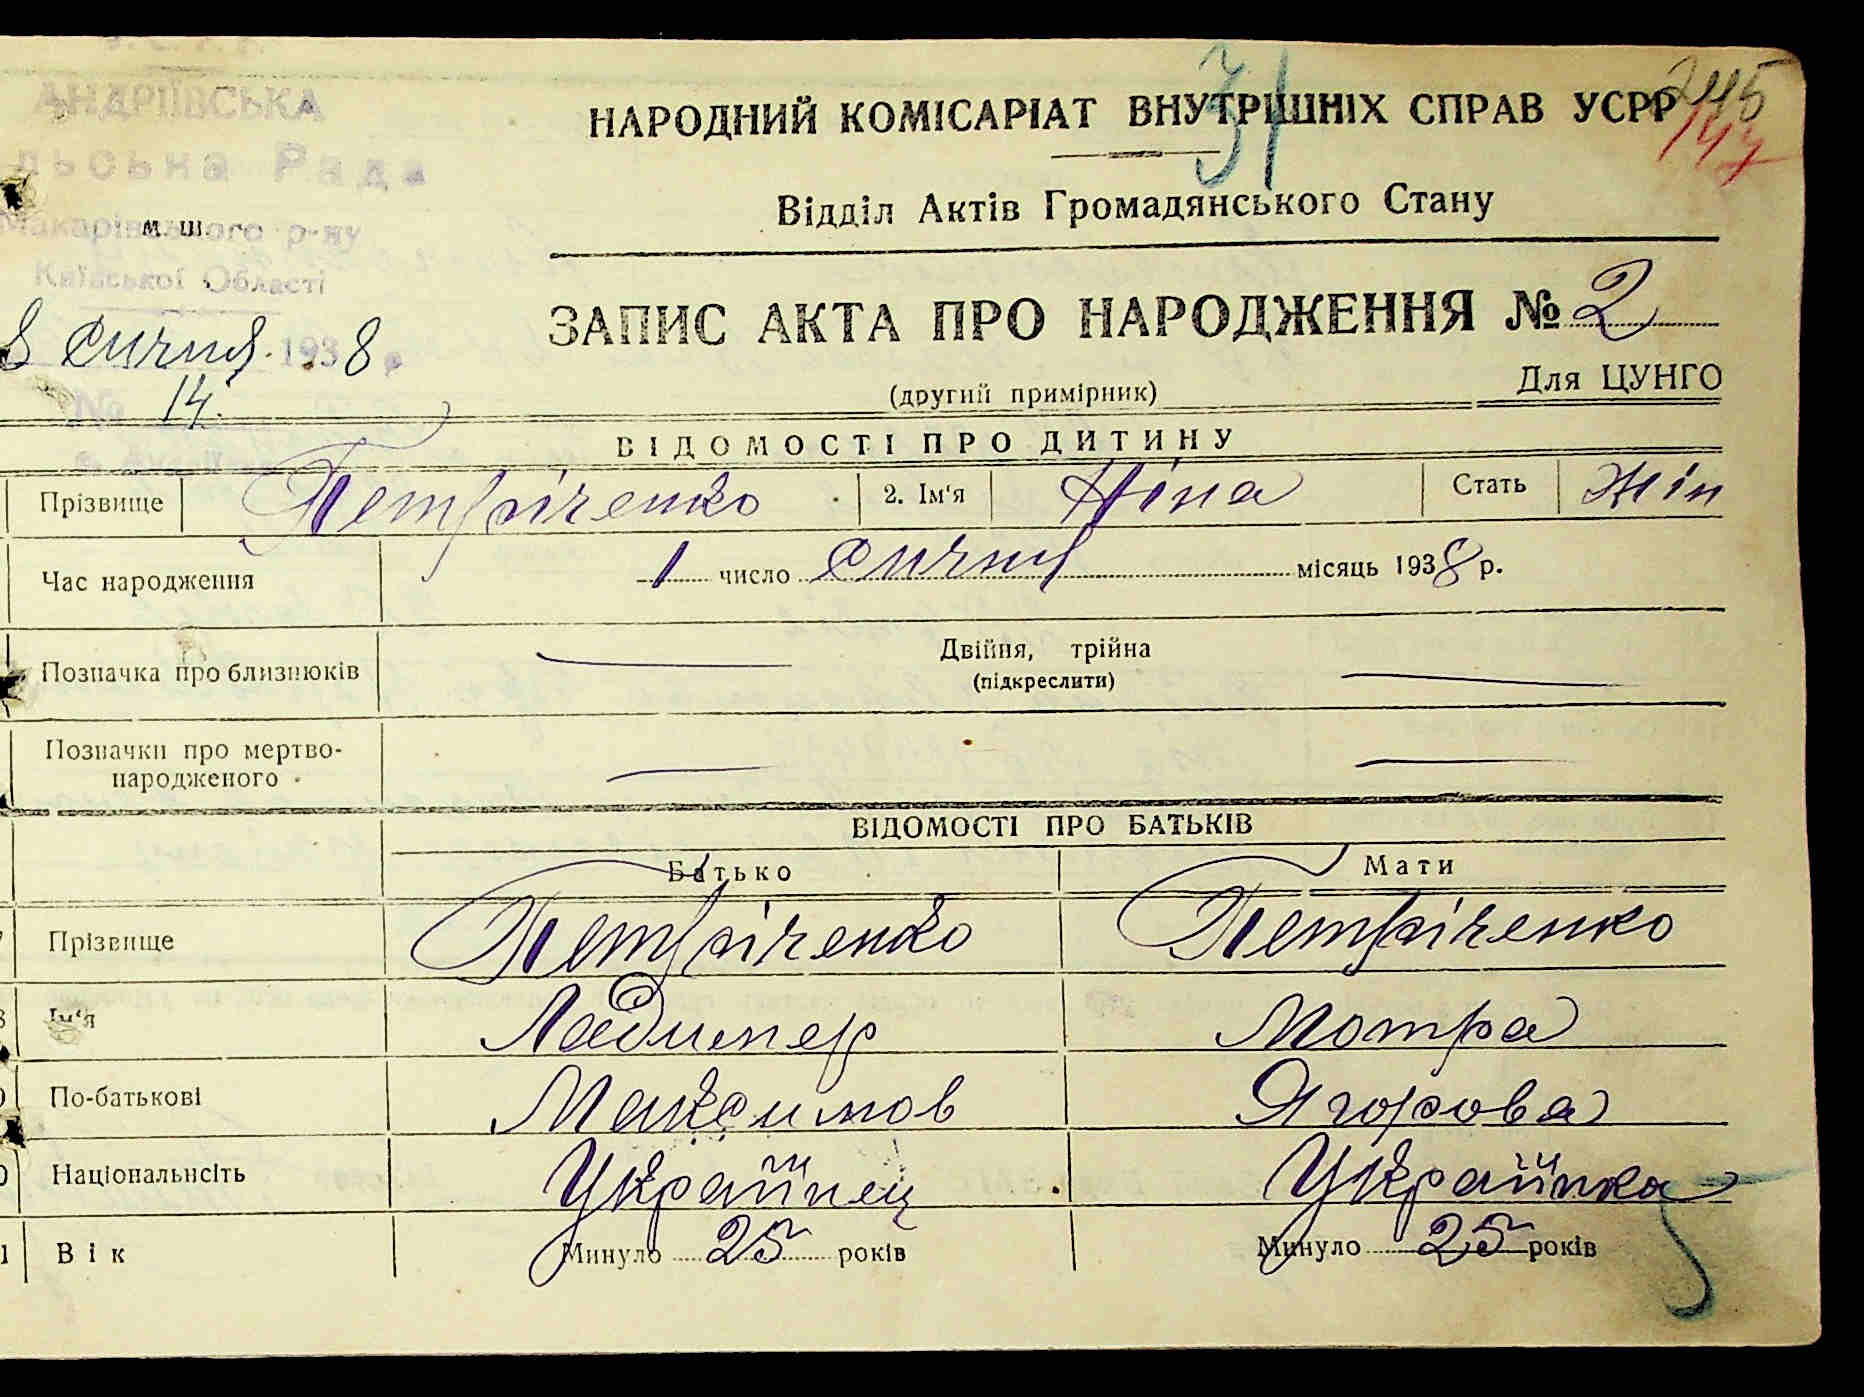 У. С. Р. Р.
АНДРІЇВСЬКА
льська Рада
Макарівського р-ну
м. ш.
Київської Області
8 сичня 1938 р.
№ 14.
31
245
147
НАРОДНИЙ КОМІСАРІАТ ВНУТРІШНІХ СПРАВ УСРР
Відділ Актів Громадянського Стану
ЗАПИС АКТА ПРО НАРОДЖЕННЯ № 2
(другий примірник)
Для ЦУНГО
ВІДОМОСТІ ПРО ДИТИНУ
Прізвище Петріченко 2. Ім'я Ніна Стать Жін
Час народження 1 число сичня місяць 1938 р.
Позначка про близнюків Двійня, трійна
(підкреслити)
Позначки про мертво-
народженого
ВІДОМОСТІ ПРО БАТЬКІВ
Батько Мати
7 Прізвище Петріченко Петріченко
8 Ім'я Ладимер Мотра
9 По-батькові Максимов Ягорова
0 Національність Українец Українка
1 Вік Минуло 25 років Минуло 25 років